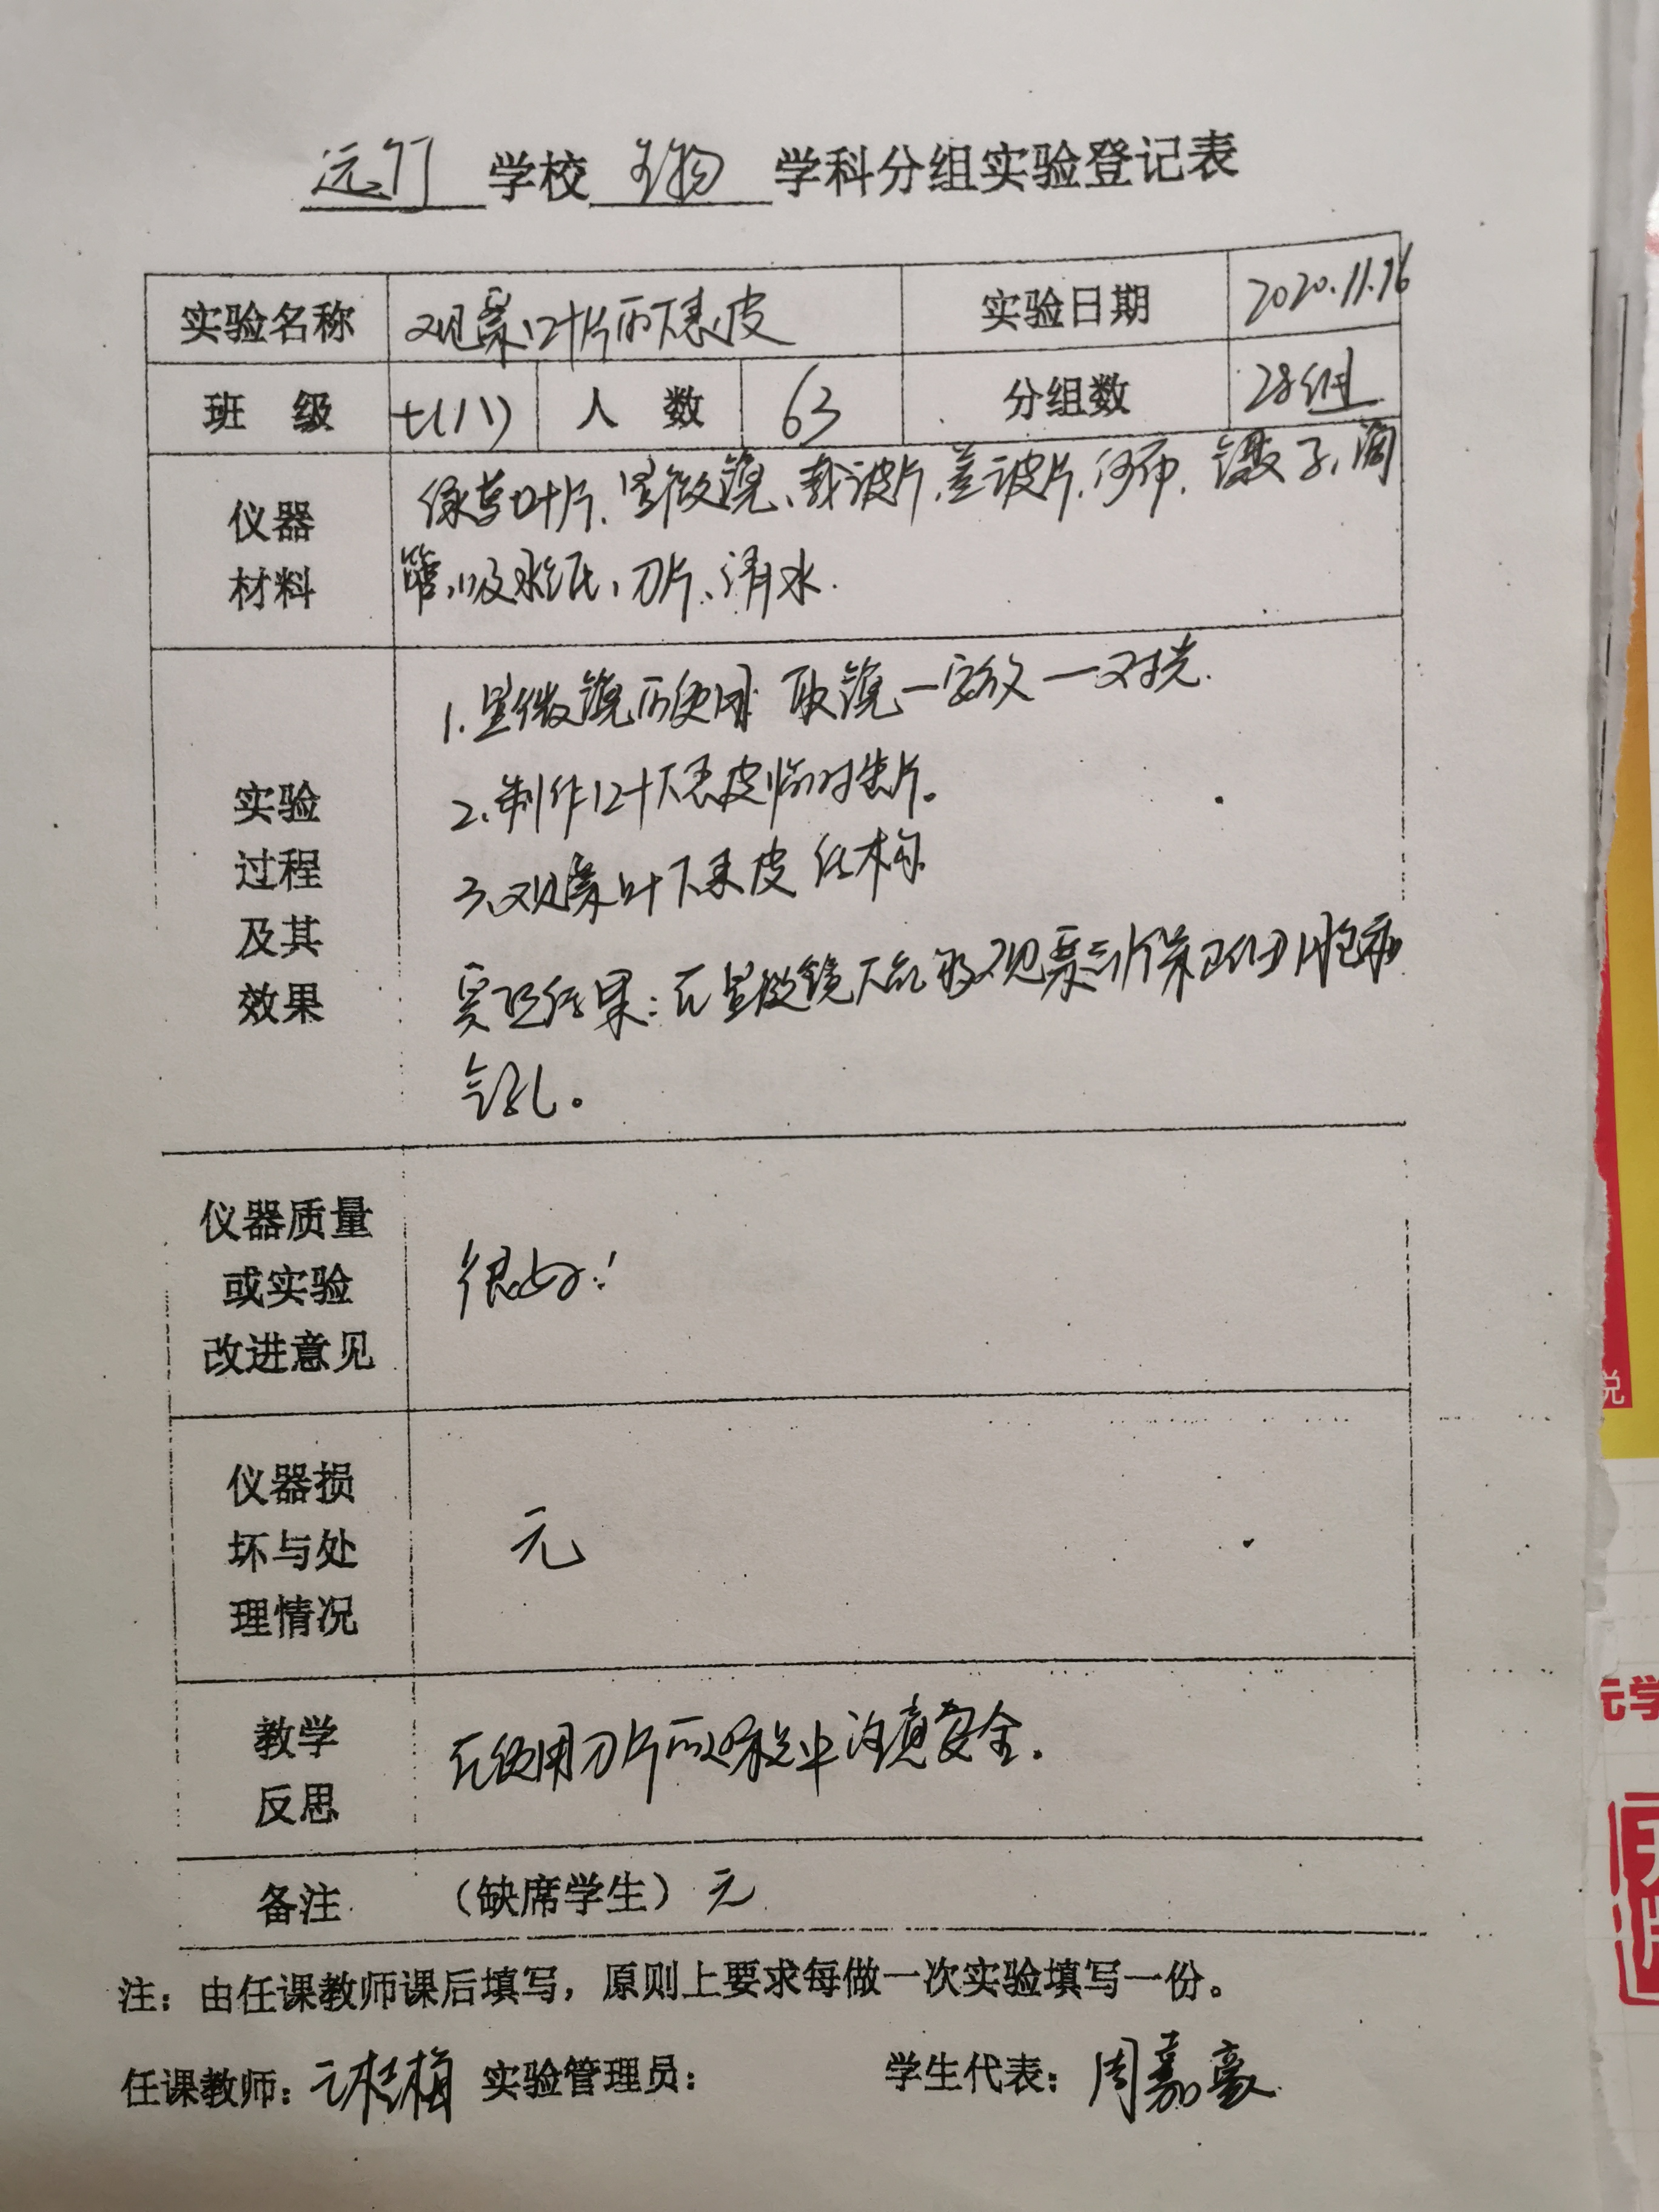 学校 生物 学科分组实验登记表
实验名称 观察叶片的下表皮 实验日期 2020.11.16
班 级 七(11) 人 数 63 分组数 28组
仪器材料 绿色叶片、显微镜、载玻片、盖玻片、纱布、镊子、滴
管、吸水纸、刀片、清水.
实验过程及其效果
1.显微镜的使用 取镜—安放—对光.
2.制作叶下表皮临时装片。
3.观察叶下表皮结构
实验结果:在显微镜下能够观察到保卫细胞和
气孔。
仪器质量或实验改进意见 很好!
仪器损坏与处理情况 无
教学反思 在使用刀片的过程中注意安全.
备注 (缺席学生) 无
注:由任课教师课后填写,原则上要求每做一次实验填写一份。
任课教师: 实验管理员: 学生代表:周嘉豪
说
元学